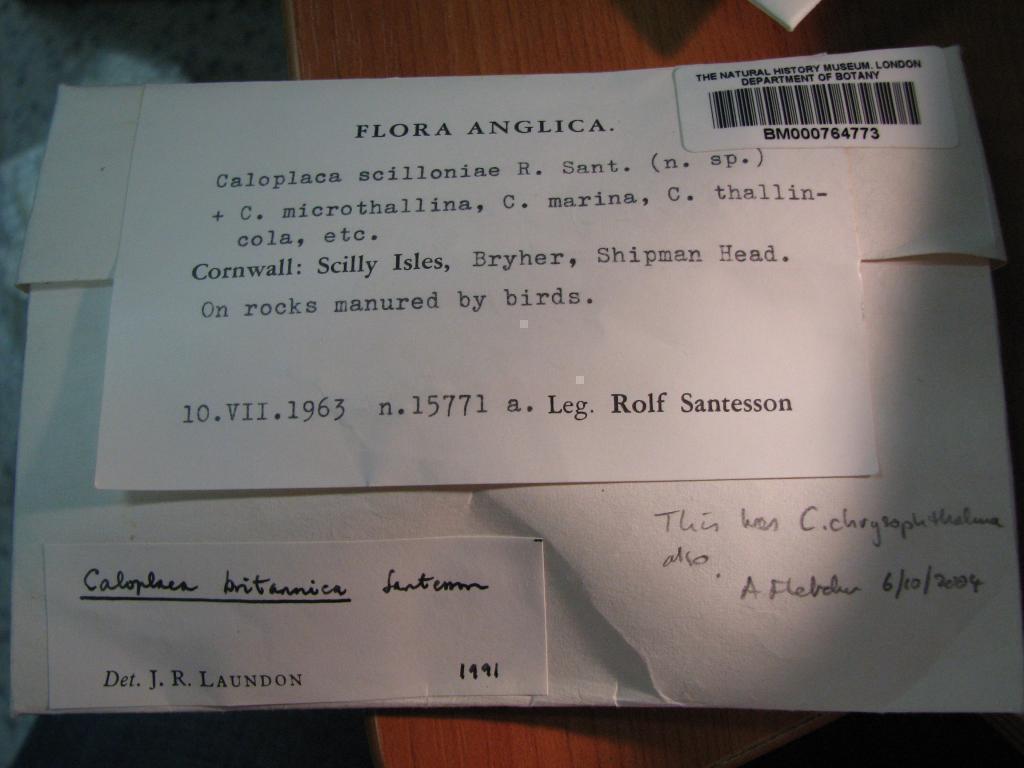 THE NATURAL HISTORY MUSEUM. LONDON
DEPARTMENT OF BOTANY
BM000764773
FLORA ANGLICA.
Caloplaca scilloniae R. Sant. (n. sp.)
+ C. microthallina, C. marina, C. thallin-
cola, etc.
Cornwall: Scilly Isles, Bryher, Shipman Head.
On rocks manured by birds.
10.VII.1963 n.15771 a. Leg. Rolf Santesson
This has C.chrysophthalma
also.
A Fletcher 6/10/2004
Caloplaca britannica Santesson
Det. J. R. LAUNDON 1991